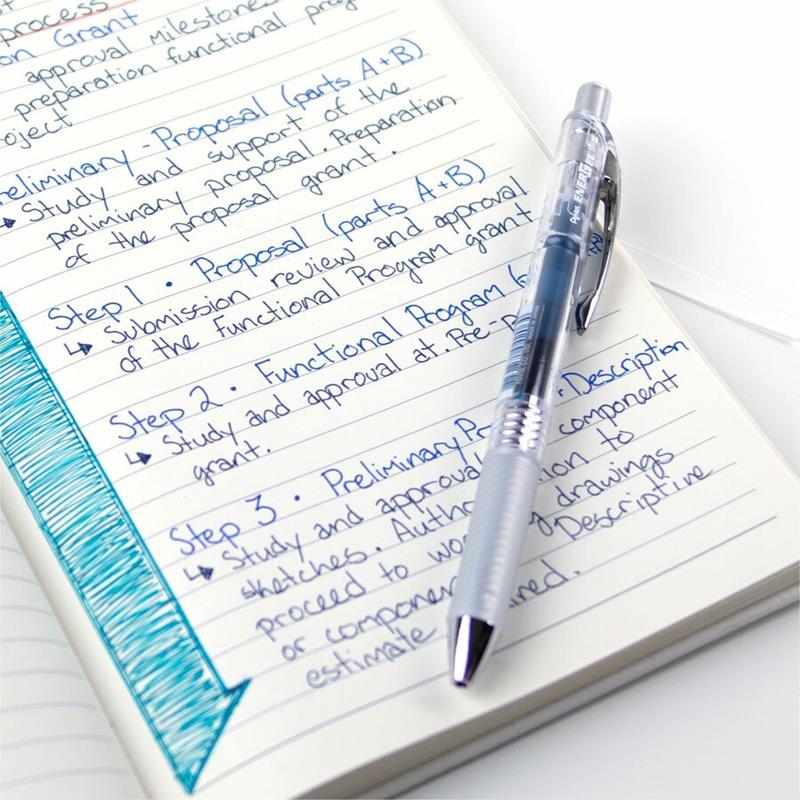 process
on Grant
approval milestone
preparation functional prog
oject
reliminary-Proposal (parts A+B)
Study and support of the
preliminary proposal. Preparation
of the proposal grant.
Step 1 • Proposal (parts A+B)
Submission review and approval
of the Functional Program grant
Step 2 • Functional Program
Study and approval at. Pre-p
grant.
Step 3 • Preliminary Pr • Description
Study and approval component
sketches. Autho tion to
proceed to wo g drawings
or componen Descriptive
estimate ired.
Pentel ENERGEL